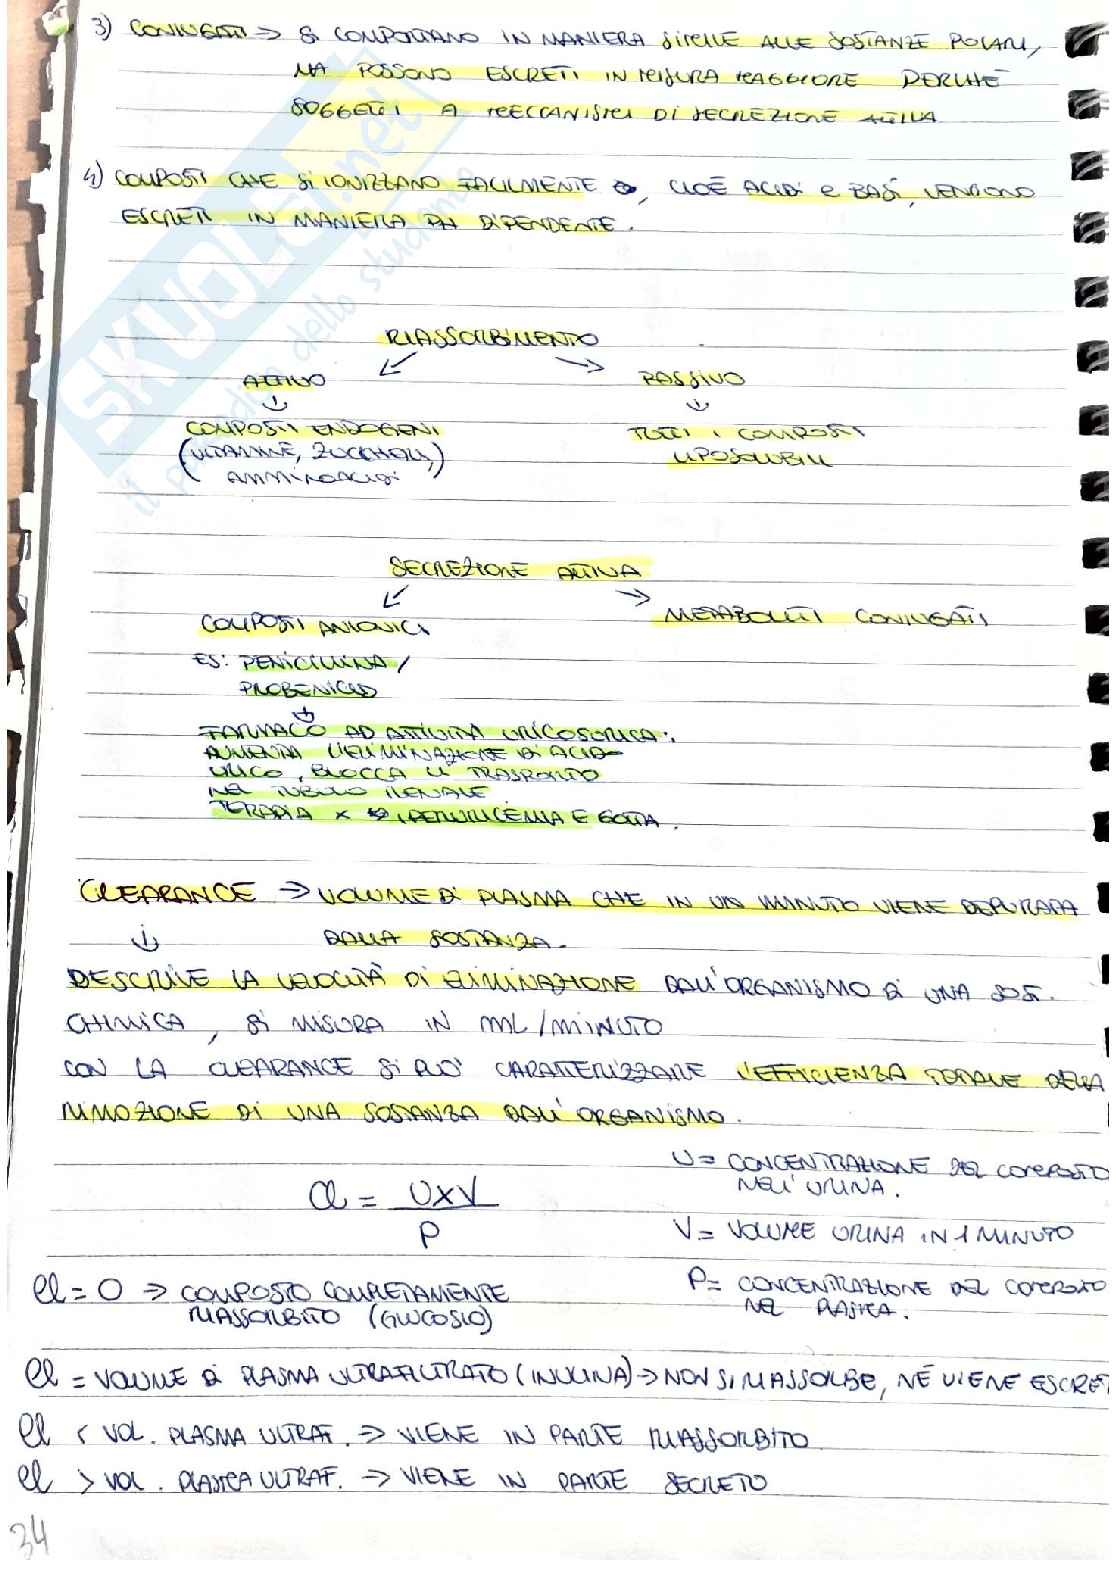 3) CONIUGATI => SI COMPORTANO IN MANIERA SIMILE ALLE SOSTANZE POLARI,
MA POSSONO ESCRETI IN MISURA MAGGIORE PERCHÉ
SOGGETTI A MECCANISMI DI SECREZIONE ATTIVA
4) COMPOSTI CHE SI IONIZZANO FACILMENTE, CIOÈ ACIDI e BASI, VENGONO
ESCRETI IN MANIERA PH DIPENDENTE.
RIASSORBIMENTO
ATTIVO PASSIVO
COMPOSTI ENDOGENI TUTTI I COMPOSTI
(VITAMINE, ZUCCHERI, LIPOSOLUBILI
AMMINOACIDI)
SECREZIONE ATTIVA
COMPOSTI ANIONICI METABOLITI CONIUGATI
ES: PENICILLINA /
PROBENICID
FARMACO AD ATTIVITÀ URICOSURICA:
AUMENTA L'ELIMINAZIONE DI ACIDO
URICO, BLOCCA IL TRASPORTO
NEL TUBULO RENALE
TERAPIA x IPERURICEMIA E GOTTA.
CLEARANCE => VOLUME DI PLASMA CHE IN UN MINUTO VIENE DEPURATA
DALLA SOSTANZA.
DESCRIVE LA VELOCITÀ DI ELIMINAZIONE DALL'ORGANISMO DI UNA SOST.
CHIMICA, SI MISURA IN mL/MINUTO
CON LA CLEARANCE SI PUÒ CARATTERIZZARE L'EFFICIENZA TOTALE DELLA
RIMOZIONE DI UNA SOSTANZA DALL'ORGANISMO.
U= CONCENTRAZIONE DEL COMPOSTO
NELL'URINA.
Cl = UxV / P
V= VOLUME URINA IN 1 MINUTO
P= CONCENTRAZIONE DEL COMPOSTO
NEL PLASMA.
Cl = 0 => COMPOSTO COMPLETAMENTE
RIASSORBITO (GLUCOSIO)
Cl = VOLUME DI PLASMA ULTRAFILTRATO (INULINA) => NON SI RIASSORBE, NÉ VIENE ESCRET
Cl < VOL. PLASMA ULTRAF. => VIENE IN PARTE RIASSORBITO
Cl > VOL. PLASMA ULTRAF. => VIENE IN PARTE SECRETO
34
SKUOLA.net
il paradiso dello studente